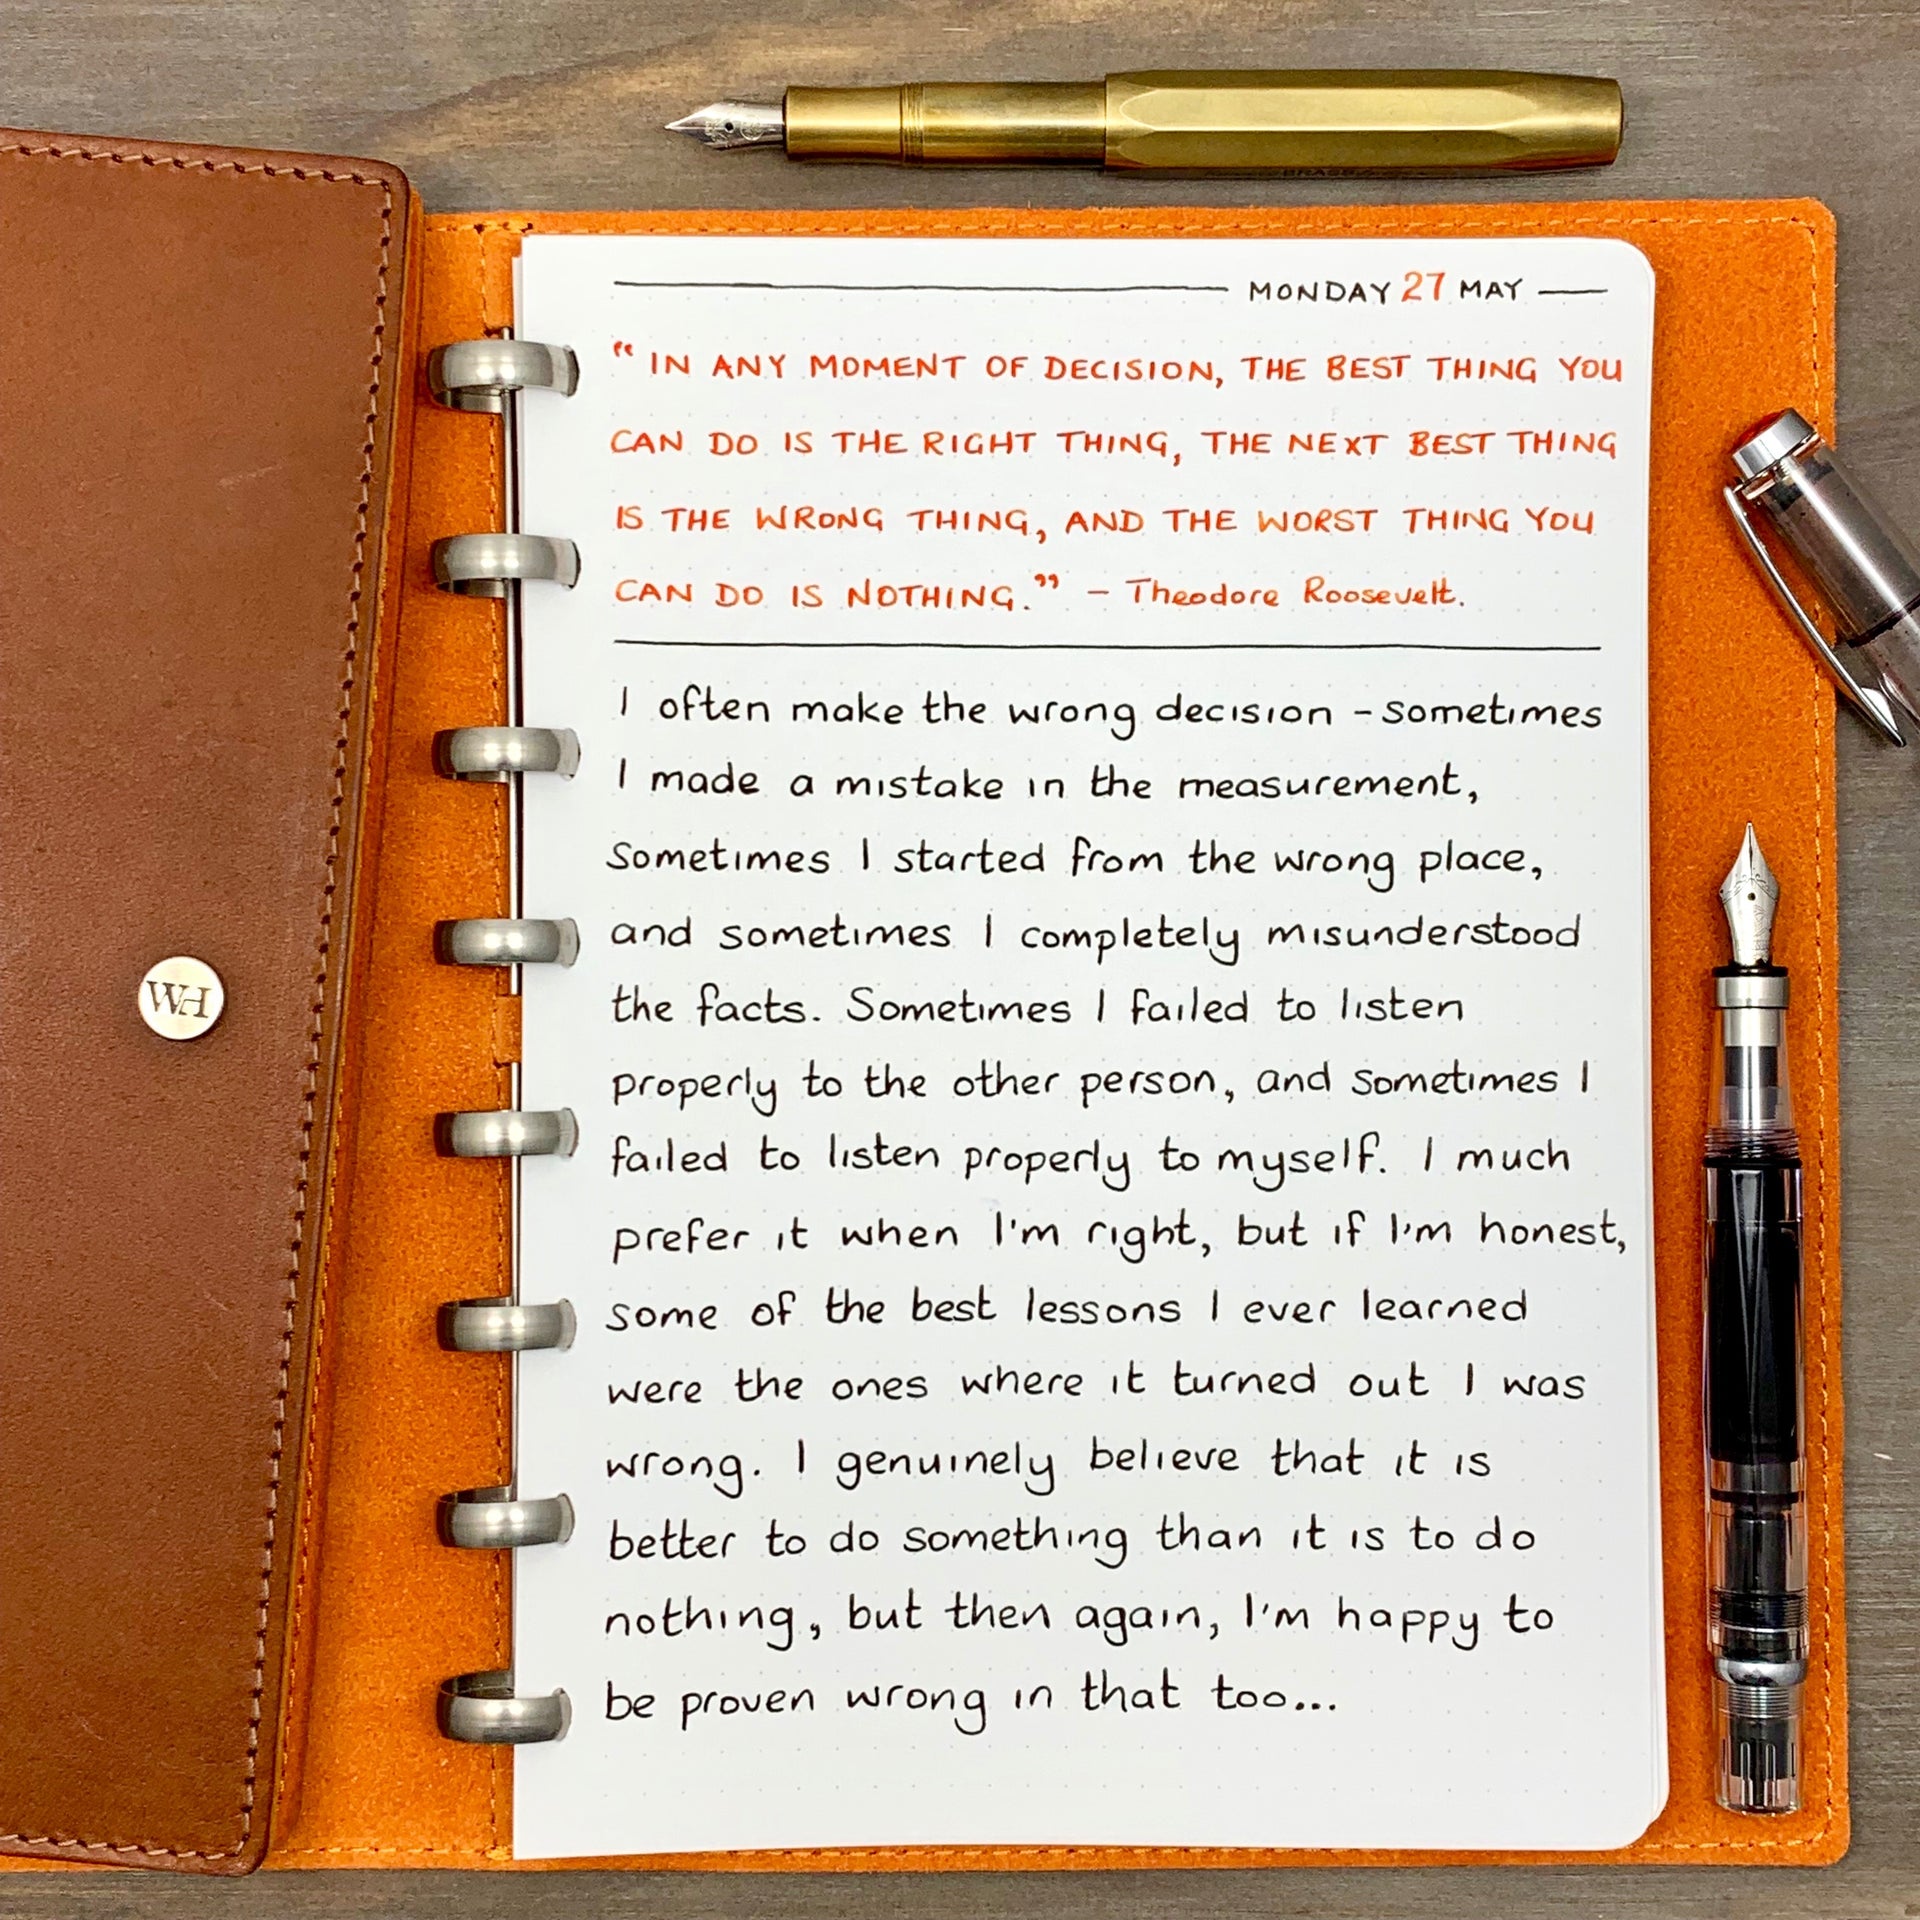 MONDAY 27 MAY
“ IN ANY MOMENT OF DECISION, THE BEST THING YOU
CAN DO IS THE RIGHT THING, THE NEXT BEST THING
IS THE WRONG THING, AND THE WORST THING YOU
CAN DO IS NOTHING.” – Theodore Roosevelt.
I often make the wrong decision – sometimes
I made a mistake in the measurement,
sometimes I started from the wrong place,
and sometimes I completely misunderstood
the facts. Sometimes I failed to listen
properly to the other person, and sometimes I
failed to listen properly to myself. I much
prefer it when I'm right, but if I'm honest,
some of the best lessons I ever learned
were the ones where it turned out I was
wrong. I genuinely believe that it is
better to do something than it is to do
nothing, but then again, I'm happy to
be proven wrong in that too...
WH
BRASS